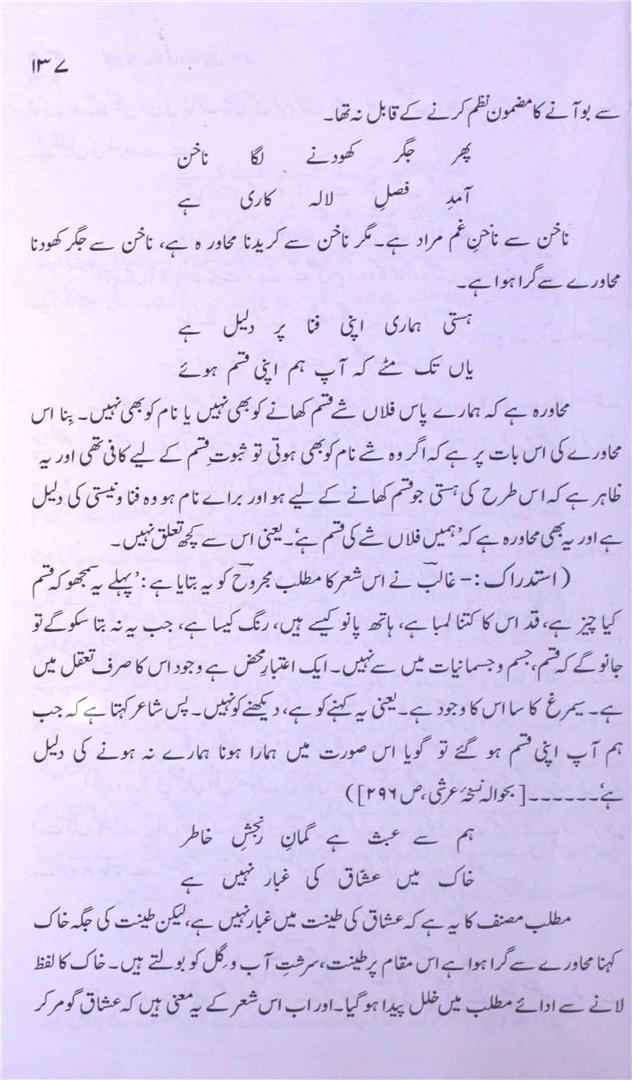 ۱۳۷
سے بو آنے کا مضمون نظم کرنے کے قابل نہ تھا۔
پھر جگر کھودنے لگا ناخن
آمدِ فصلِ لالہ کاری ہے
ناخن سے ناخنِ غم مراد ہے۔ مگر ناخن سے کریدنا محاورہ ہے، ناخن سے جگر کھودنا
محاورے سے گرا ہوا ہے۔
ہستی ہماری اپنی فنا پر دلیل ہے
یاں تک مٹے کہ آپ ہم اپنی قسم ہوئے
محاورہ ہے کہ ہمارے پاس فلاں شے قسم کھانے کو بھی نہیں یا نام کو بھی نہیں۔ بِنا اس
محاورے کی اس بات پر ہے کہ اگر وہ شے نام کو بھی ہوتی تو ثبوتِ قسم کے لیے کافی تھی اور یہ
ظاہر ہے کہ اس طرح کی ہستی جو قسم کھانے کے لیے ہو اور براے نام ہو وہ فنا و نیستی کی دلیل
ہے اور یہ بھی محاورہ ہے کہ ’ہمیں فلاں شے کی قسم ہے‘۔ یعنی اس سے کچھ تعلق نہیں۔
(استدراک:- غالبؔ نے اس شعر کا مطلب مجروحؔ کو یہ بتایا ہے: ’پہلے یہ سمجھو کہ قسم
کیا چیز ہے، قد اس کا کتنا لمبا ہے، ہاتھ پانو کیسے ہیں، رنگ کیسا ہے، جب یہ نہ بتا سکو گے تو
جانو گے کہ قسم، جسم و جسمانیات میں سے نہیں۔ ایک اعتبارِ محض ہے وجود اس کا صرف تعقل میں
ہے۔ سیمرغ کا سا اس کا وجود ہے۔ یعنی یہ کہنے کو ہے، دیکھنے کو نہیں۔ پس شاعر کہتا ہے کہ جب
ہم آپ اپنی قسم ہو گئے تو گویا اس صورت میں ہمارا ہونا ہمارے نہ ہونے کی دلیل
ہے‘۔۔۔۔۔۔[بحوالہ نسخۂ عرشی، ص ۲۹۶])
ہم سے عبث ہے گمانِ رنجشِ خاطر
خاک میں عشاق کی غبار نہیں ہے
مطلب مصنف کا یہ ہے کہ عشاق کی طینت میں غبار نہیں ہے، لیکن طینت کی جگہ خاک
کہنا محاورے سے گرا ہوا ہے اس مقام پر طینت، سرشت، آب و گل کو بولتے ہیں۔ خاک کا لفظ
لانے سے ادائے مطلب میں خلل پیدا ہو گیا۔ اور اب اس شعر کے یہ معنی ہیں کہ عشاق گو مر کر